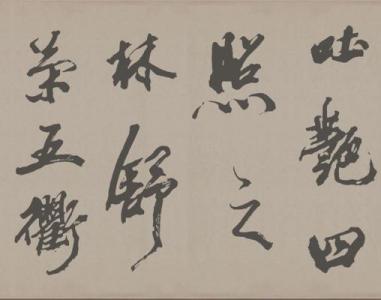 吐艷四
照之
林舒
榮五衢